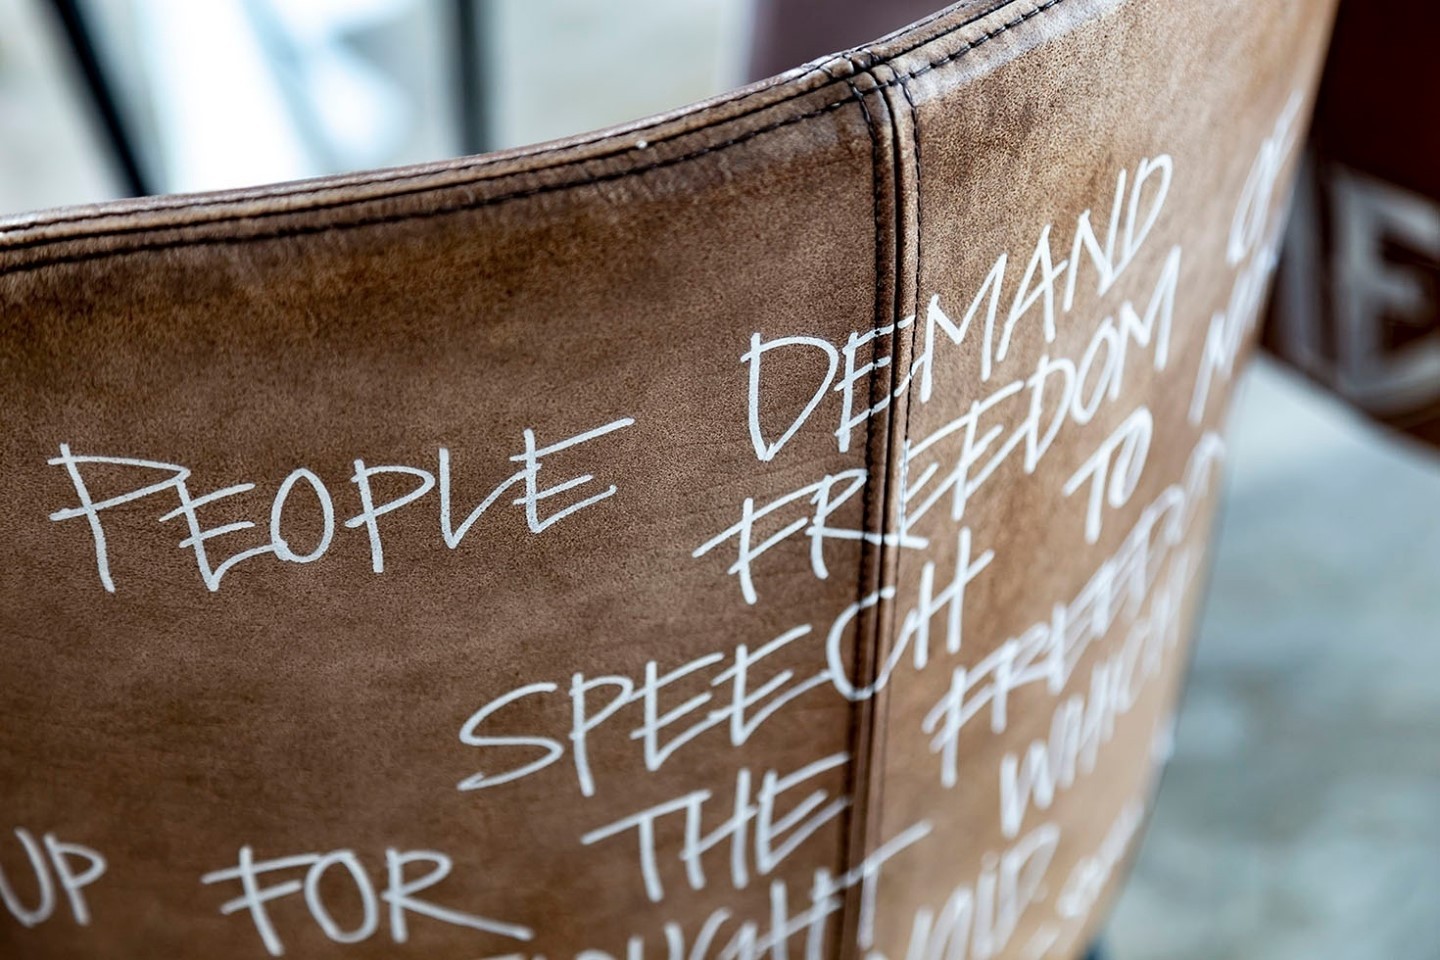 PEOPLE DEMAND
FREEDOM OF
SPEECH TO
UP FOR THE FREEDO
OUGHT WHICH
VOID
E